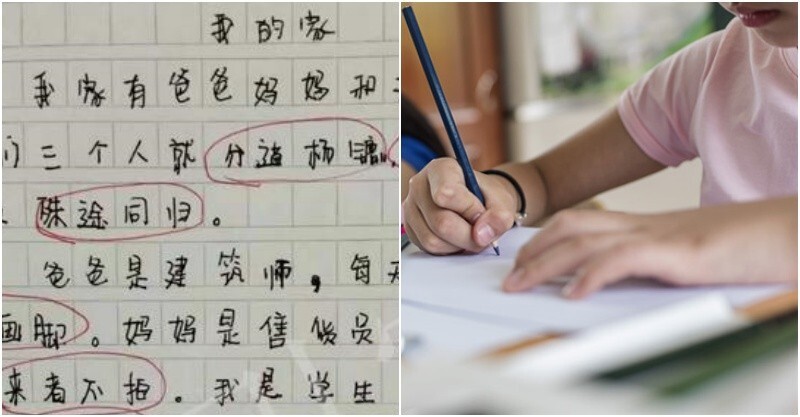 我的家
我家有爸爸妈妈和
们三个人就分道杨镳,
殊途同归。
爸爸是建筑师,每天
画脚。妈妈是售货员
来者不拒。我是学生